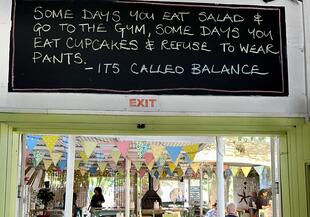 SOME DAYS YOU EAT SALAD &
GO TO THE GYM, SOME DAYS YOU
EAT CUPCAKES & REFUSE TO WEAR
PANTS. - ITS CALLED BALANCE
EXIT